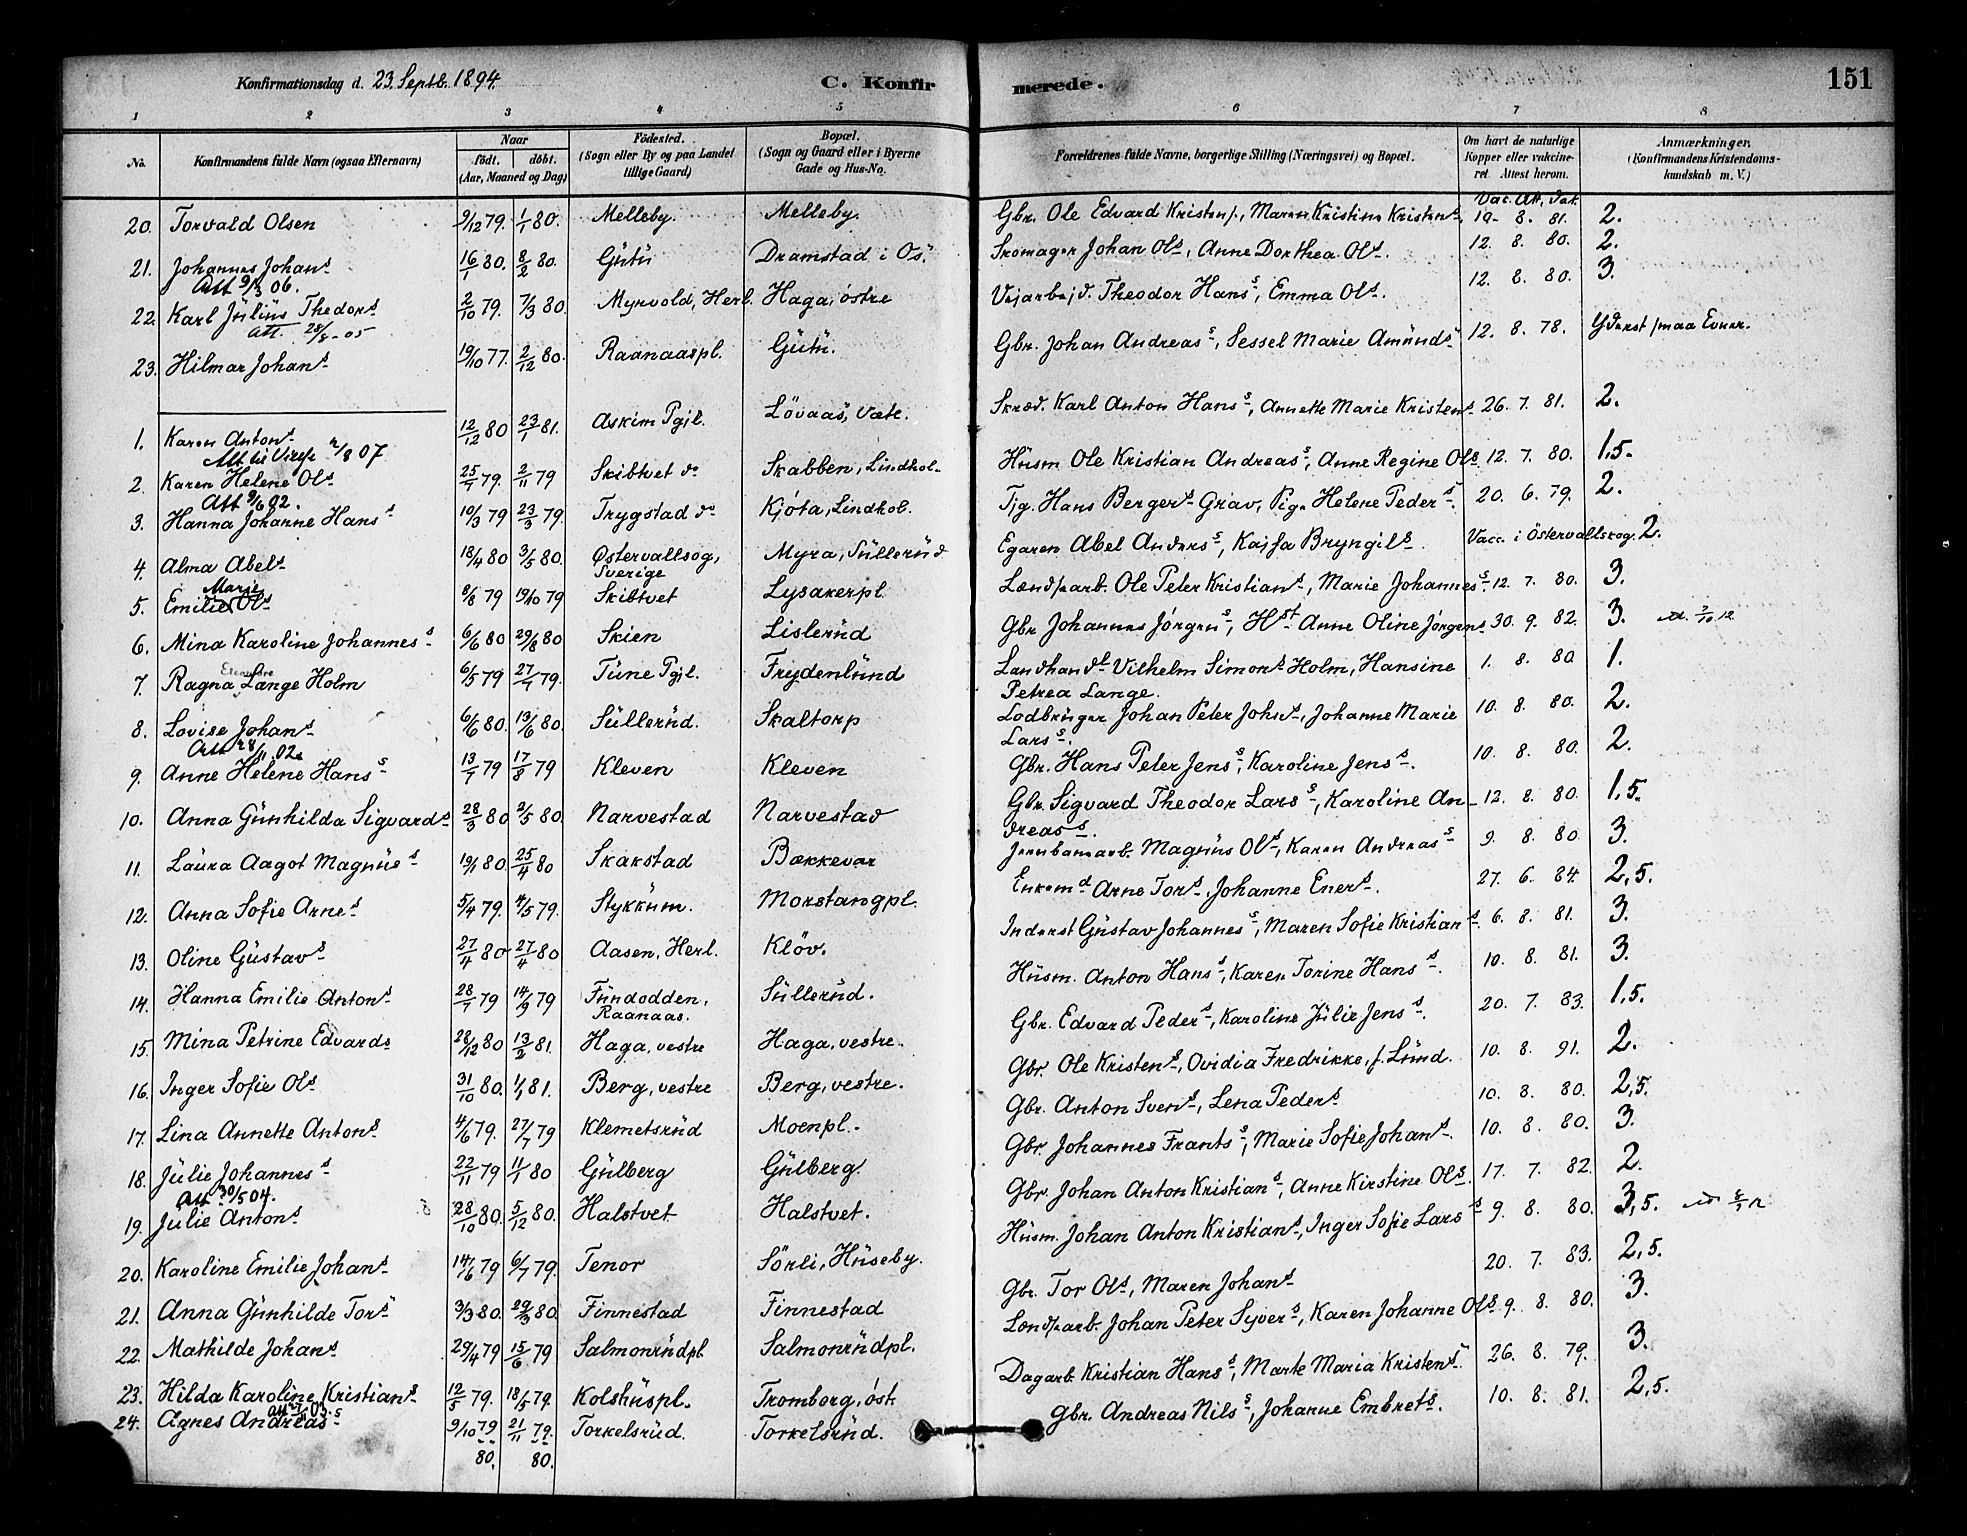 Konfirmationsdag d. 23. Septb. 1894.
C. Konfirmerede.
151
1 2 3 4 5 6 7 8
No. Konfirmandens fulde Navn (ogsaa Efternavn) Naar født. døbt. (Aar, Maaned og Dag) Fødested. (Sogn eller By og paa Landet tillige Gaard) Bopæl. (Sogn og Gaard eller i Byerne Gade og Hus-No. Forældrenes fulde Navne, borgerlige Stilling (Næringsvei) og Bopæl. Om havt de naturlige Kopper eller vakcineret. Attest herom. Anmærkninger. (Konfirmandens Kristendomskundskab m. V.)
Vac. Att. Dat.
20. Torvald Olsen 9/12 79. 1/1 80. Melleby. Melleby. Gbr. Ole Edvard Kristens., Maren Kristine Kristens. 19. 8. 81. 2.
21. Johannes Johans 16/1 80. 8/2 80. Gutu Dramstad i Os. Skomager Johan Ols, Anne Dorthea Ols. 12. 8. 80. 2.
Att 9/3 06.
22. Karl Julius Thedors 2/10 79. 7/3 80. Myrvold, Herl. Haga, østre Vejarbejd. Theodor Hans, Emma Ols. 12. 8. 80. 3.
att. 28/8-05
23. Hilmar Johans 19/10 77. 2/12 80. Raanaaspl. Gutu. Gbr. Johan Andreas, Sessel Marie Amunds 12. 8. 78. Yderst smaa Evner.
1. Karen Antons 12/12 80 23/1 81. Askim Pgjl. Løvaas, Vate. Skræd. Karl Anton Hans, Annette Marie Kristens 26. 7. 81. 2.
2. Karen Helene Ols 25/7 79. 2/11 79 Skibtvet do Skabben, Lindhol. Husm. Ole Kristian Andreas, Anne Regine Ols 12. 7. 80. 1,5.
Att 9/6 02.
3. Hanna Johanne Hans 10/3 79 23/3 79. Trygstad do Kjøta, Lindhol. Tjg. Hans Bergers Grav, Pige Helene Peders. 20. 6. 79. 2.
4. Alma Abels 18/4 80 3/5 80. Østervallsog, Sverige Myra, Sullerud Egaren Abel Anders, Kajsa Bryngils. Vacc. i Östervallskog. 2.
5. Emilie Marie Ols 8/8 79 19/10 79 Skibtvet Lysakerpl. Lændsarb. Ole Peter Kristians, Marie Johannes. 12. 7. 80. 3.
6. Mina Karoline Johannes 6/6 80 29/8 80 Skien Lislerud Gbr Johannes Jørgens, Hst Anne Oline Jørgens 30. 9. 82. 3.
7. Ragna Eleonore Lange Holm 6/5 79 27/7 79. Tune Pgjl. Frydenlund Landhandl Vilhelm Simons Holm, Hansine Petrea Lange. 1. 8. 80 1.
8. Lovise Johans 6/6 80. 13/6 80. Sullerud. Skaltorp Lodbruger Johan Peter Johs, Johanne Marie Lars. 10. 8. 80. 2.
Att 28/11 02.
9. Anne Helene Hans 13/7 79 17/8 79 Kleven Kleven Gbr. Hans Peter Jens, Karoline Jens. 10. 8. 80. 2.
10. Anna Gunhilda Sigvards 28/3 80 2/5 80. Narvestad Narvestad Gbr. Sigvard Theodor Lars, Karoline Andreas. 12. 8. 80. 1,5.
11. Laura Aagot Magnus 19/1 80. 25/4 80 Skakstad Bækkevar Jernbanearb. Magnus Ols, Karen Andreas 9. 8. 80. 3.
12. Anna Sofie Arnes 5/4 79. 4/5 79. Stykkum. Morstangpl. Enkemd Arne Tors, Johanne Eners. 27. 6. 84. 2,5.
13. Oline Gustavs 27/4 80 27/4 80 Aasen, Herl. Kløv. Inderst Gustav Johannes, Maren Sofie Kristians. 6. 8. 81. 3.
14. Hanna Emilie Antons 28/7 79 14/9 79 Fundodden, Raanaas. Sullerud. Husm. Anton Hans, Karen Torine Hans. 10. 8. 81. 3.
15. Mina Petrine Edvards 28/12 80 13/2 81. Haga, vestre Haga, vestre. Gbr. Edvard Peders, Karoline Julie Jens. 20. 7. 83. 1,5.
16. Inger Sofie Ols 31/10 80. 1/1 81. Berg, vestre Berg, vestre. Gbr. Ole Kristens, Ovidia Fredrikke, f. Lund. 10. 8. 91. 2.
17. Lina Annette Antons 4/6 79. 27/7 79 Klemetsrud Moenpl. Gbr. Anton Svens, Lena Peders 10. 8. 80. 2,5.
18. Julie Johannes 22/11 79 11/1 80 Gulberg Gulberg. Gbr. Johannes Frants, Marie Sofie Johans. 10. 8. 80. 3.
Att 30/5 04.
19. Julie Antons 28/10 80. 5/12 80. Halstvet Halstvet. Gbr. Johan Anton Kristians, Anne Kirstine Ols. 17. 7. 82. 2.
20. Karoline Emilie Johans 14/6 79 6/7 79. Tenor Sørli, Huseby. Husm. Johan Anton Kristians, Inger Sofie Lars 9. 8. 80. 3,5.
21. Anna Gunhilde Tors 3/3 80. 29/3 80. Finnestad Finnestad Gbr. Tor Ols, Maren Johans 20. 7. 83. 2,5.
22. Mathilde Johans 29/4 79 15/6 79 Salmonrudpl. Salmonrudpl. Lændsarb. Johan Peter Syvers, Karen Johanne Ols 9. 8. 80. 3.
23. Hilda Karoline Kristians 12/5 79. 18/5 79. Kolshuspl. Tromborg, øst. Dagarb. Kristian Hans, Marte Maria Kristens. 26. 8. 79. 3.
24. Agnes Andreas 9/10 79 21/11 79. Torkelsrud. Torkelsrud. Gbr. Andreas Nils, Johanne Embrets. 10. 8. 81. 2,5.
80. 80.